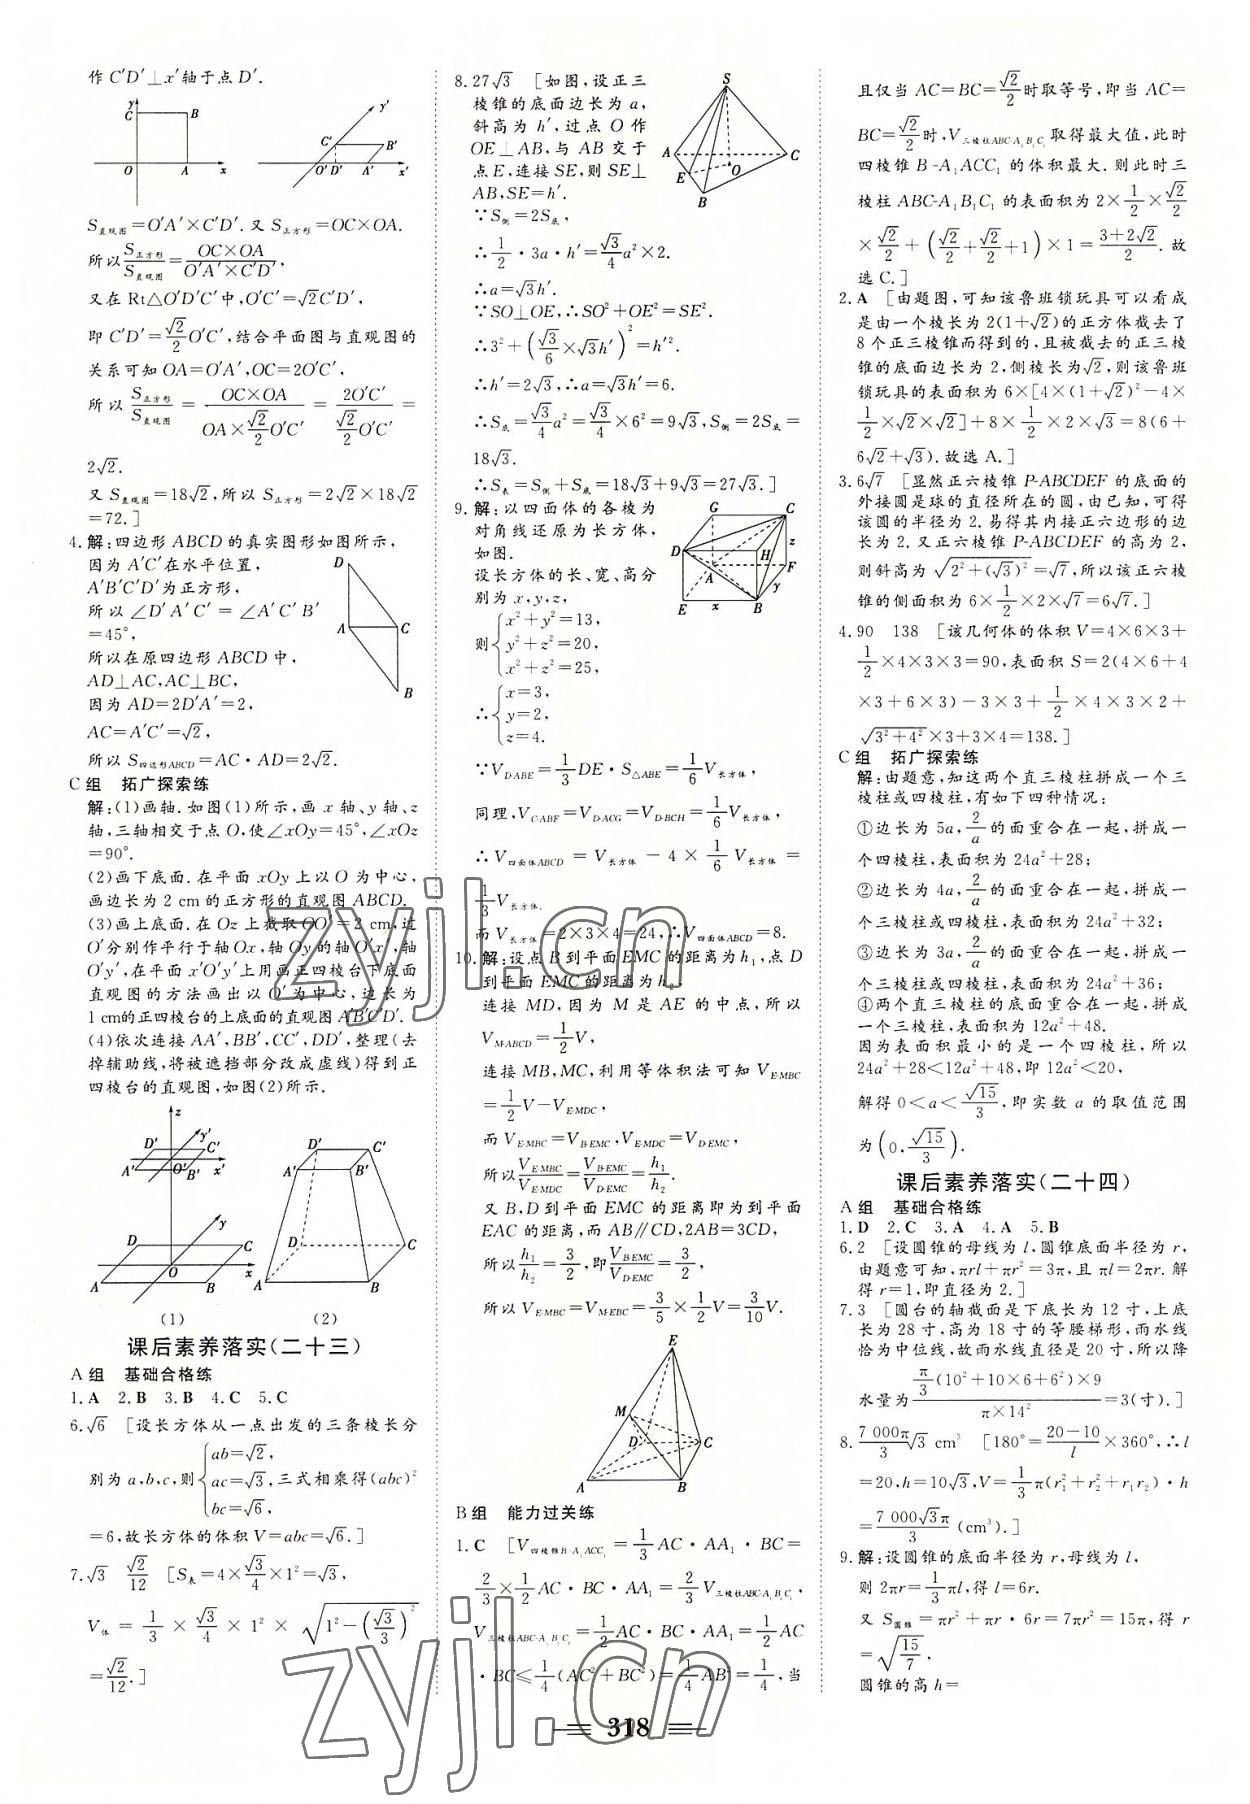 作 C′D′⊥x′轴于点 D′.
y C B O A x y′ C′ B′ O′ D′ A′ x′
S直观图=O′A′×C′D′. 又 S正方形=OC×OA.
所以 S正方形/S直观图 = (OC×OA)/(O′A′×C′D′),
又在 Rt△O′D′C′中,O′C′=√2C′D′,
即 C′D′=(√2/2)O′C′,结合平面图与直观图的
关系可知 OA=O′A′,OC=2O′C′,
所以 S正方形/S直观图 = (OC×OA)/(OA×(√2/2)O′C′) = 2O′C′/((√2/2)O′C′) =
2√2.
又 S直观图=18√2,所以 S正方形=2√2×18√2
=72.]
4.解:四边形 ABCD 的真实图形如图所示,
因为 A′C′在水平位置,
A′B′C′D′为正方形,
所以∠D′A′C′=∠A′C′B′
=45°,
所以在原四边形 ABCD 中,
AD⊥AC,AC⊥BC,
因为 AD=2D′A′=2,
AC=A′C′=√2,
所以 S四边形ABCD=AC·AD=2√2.
D A C B
C 组 拓广探索练
解:(1)画轴.如图(1)所示,画 x 轴、y 轴、z
轴,三轴相交于点 O,使∠xOy=45°,∠xOz
=90°.
(2)画下底面.在平面 xOy 上以 O 为中心,
画边长为 2 cm 的正方形的直观图 ABCD.
(3)画上底面.在 Oz 上截取OO′=2 cm,过
O′分别作平行于轴Ox,轴Oy的轴O′x′,轴
O′y′,在平面 x′O′y′上用画正四棱台下底面
直观图的方法画出以 O′为中心,边长为
1 cm的正四棱台的上底面的直观图 A′B′C′D′.
(4)依次连接 AA′,BB′,CC′,DD′,整理(去
掉辅助线,将被遮挡部分改成虚线)得到正
四棱台的直观图,如图(2)所示.
z D′ y′ C′ A′ O′ B′ x′ y D C O A B x
D′ C′ A′ B′ D C A B
(1) (2)
课后素养落实(二十三)
A 组 基础合格练
1.A 2.B 3.B 4.C 5.C
6.√6 [设长方体从一点出发的三条棱长分
别为 a,b,c,则{ab=√2, ac=√3, bc=√6, 三式相乘得(abc)²
=6,故长方体的体积 V=abc=√6.]
7.√3 √2/12 [S表=4×(√3/4)×1²=√3,
V体=1/3×√3/4×1²×√(1²−(√3/3)²)
=√2/12.]
8.27√3 [如图,设正三
棱锥的底面边长为 a,
斜高为 h′,过点 O 作
OE⊥AB,与 AB 交于
点 E,连接 SE,则 SE⊥
AB,SE=h′.
S A C E O B
∵S侧=2S底,
∴1/2·3a·h′=(√3/4)a²×2.
∴a=√3h′.
∵SO⊥OE,∴SO²+OE²=SE².
∴3²+(√3/6×√3h′)²=h′².
∴h′=2√3,∴a=√3h′=6.
∴S底=(√3/4)a²=√3/4×6²=9√3,S侧=2S底=
18√3.
∴S表=S侧+S底=18√3+9√3=27√3.]
9.解:以四面体的各棱为
对角线还原为长方体,
如图.
设长方体的长、宽、高分
别为 x,y,z,
G C D H z A F y E x B
则{x²+y²=13, y²+z²=20, x²+z²=25,
∴{x=3, y=2, z=4.
∵V D-ABE=(1/3)DE·S△ABE=(1/6)V长方体,
同理,V C-ABF=V D-ACG=V D-BCH=(1/6)V长方体,
∴V四面体ABCD=V长方体−4×(1/6)V长方体=
(1/3)V长方体.
而 V长方体=2×3×4=24,∴V四面体ABCD=8.
10.解:设点 B 到平面 EMC 的距离为 h₁,点 D
到平面 EMC 的距离为 h₂.
连接 MD,因为 M 是 AE 的中点,所以
V M-ABCD=(1/2)V,
连接 MB,MC,利用等体积法可知 V E-MBC
=(1/2)V−V E-MDC,
而 V E-MBC=V B-EMC,V E-MDC=V D-EMC,
所以 V E-MBC/V E-MDC=V B-EMC/V D-EMC=h₁/h₂.
又 B,D 到平面 EMC 的距离即为到平面
EAC 的距离,而 AB∥CD,2AB=3CD,
所以 h₁/h₂=3/2,即 V B-EMC/V D-EMC=3/2,
所以 V E-MBC=V M-EBC=3/5×(1/2)V=(3/10)V.
E M D C A B
B 组 能力过关练
1.C [V四棱锥B-A₁ACC₁=(1/3)AC·AA₁·BC=
2/3×(1/2)AC·BC·AA₁=(2/3)V三棱柱ABC-A₁B₁C₁,
V三棱柱ABC-A₁B₁C₁=(1/2)AC·BC·AA₁=(1/2)AC
·BC≤(1/4)(AC²+BC²)=(1/4)AB²=1/4,当
且仅当 AC=BC=√2/2时取等号,即当 AC=
BC=√2/2时,V三棱柱ABC-A₁B₁C₁取得最大值,此时
四棱锥 B-A₁ACC₁ 的体积最大.则此时三
棱柱 ABC-A₁B₁C₁ 的表面积为 2×1/2×√2/2
×√2/2+(√2/2+√2/2+1)×1=(3+2√2)/2.故
选 C.]
2.A [由题图,可知该鲁班锁玩具可以看成
是由一个棱长为 2(1+√2)的正方体截去了
8 个正三棱锥而得到的,且被截去的正三棱
锥的底面边长为 2,侧棱长为√2,则该鲁班
锁玩具的表面积为 6×[4×(1+√2)²−4×
1/2×√2×√2]+8×1/2×2×√3=8(6+
6√2+√3).故选 A.]
3.6√7 [显然正六棱锥 P-ABCDEF 的底面的
外接圆是球的直径所在的圆,由已知,可得
该圆的半径为 2.易得其内接正六边形的边
长为 2.又正六棱锥 P-ABCDEF 的高为 2,
则斜高为 √(2²+(√3)²)=√7,所以该正六棱
锥的侧面积为 6×1/2×2×√7=6√7.]
4.90 138 [该几何体的体积 V=4×6×3+
1/2×4×3×3=90,表面积 S=2(4×6+4
×3+6×3)−3×3+1/2×4×3×2+
√(3²+4²)×3+3×4=138.]
C 组 拓广探索练
解:由题意,知这两个直三棱柱拼成一个三
棱柱或四棱柱,有如下四种情况:
①边长为 5a,2/a 的面重合在一起,拼成一
个四棱柱,表面积为 24a²+28;
②边长为 4a,2/a 的面重合在一起,拼成一
个三棱柱或四棱柱,表面积为 24a²+32;
③边长为 3a,2/a 的面重合在一起,拼成一
个三棱柱或四棱柱,表面积为 24a²+36;
④两个直三棱柱的底面重合在一起,拼成
一个三棱柱,表面积为 12a²+48.
因为表面积最小的是一个四棱柱,所以
24a²+28<12a²+48,即 12a²<20,
解得 0<a<√15/3,即实数 a 的取值范围
为(0,√15/3).
课后素养落实(二十四)
A 组 基础合格练
1.D 2.C 3.A 4.A 5.B
6.2 [设圆锥的母线为 l,圆锥底面半径为 r,
由题意可知,πrl+πr²=3π,且 πl=2πr.解
得 r=1,即直径为 2.]
7.3 [圆台的轴截面是下底长为 12 寸,上底
长为 28 寸,高为 18 寸的等腰梯形,雨水线
恰为中位线,故雨水线直径是 20 寸,所以降
水量为 (π/3(10²+10×6+6²)×9)/(π×14²)=3(寸).]
8.(7 000π/3)√3 cm³ [180°=(20−10)/l×360°,∴l
=20,h=10√3,V=(1/3)π(r₁²+r₂²+r₁r₂)·h
=7 000√3π/3 (cm³).]
9.解:设圆锥的底面半径为 r,母线为 l,
则 2πr=(1/3)πl,得 l=6r.
又 S圆锥=πr²+πr·6r=7πr²=15π,得 r
=√(15/7),
圆锥的高 h=
318
zyjl.cn
zyjl.cn